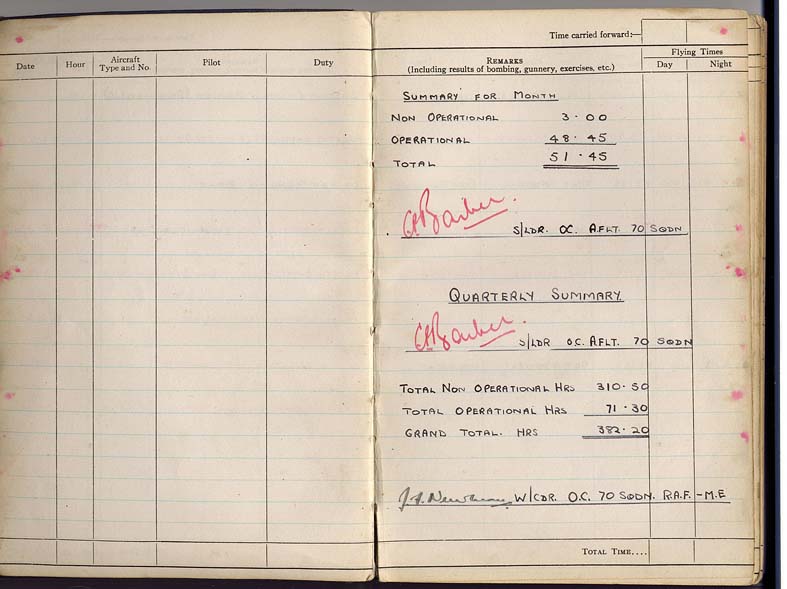 Date Hour Aircraft Type and No. Pilot Duty
Time carried forward:—
REMARKS
(Including results of bombing, gunnery, exercises, etc.)
Flying Times
Day Night
SUMMARY FOR MONTH
NON OPERATIONAL 3.00
OPERATIONAL 48.45
TOTAL 51.45
Barber.
S/LDR. OC. A.FLT. 70 SQDN
QUARTERLY SUMMARY
Barber.
S/LDR O.C. A.FLT. 70 SQDN
TOTAL NON OPERATIONAL HRS 310.50
TOTAL OPERATIONAL HRS 71.30
GRAND TOTAL. HRS 382.20
W/CDR. O.C. 70 SQDN. R.A.F. - M.E
TOTAL TIME....